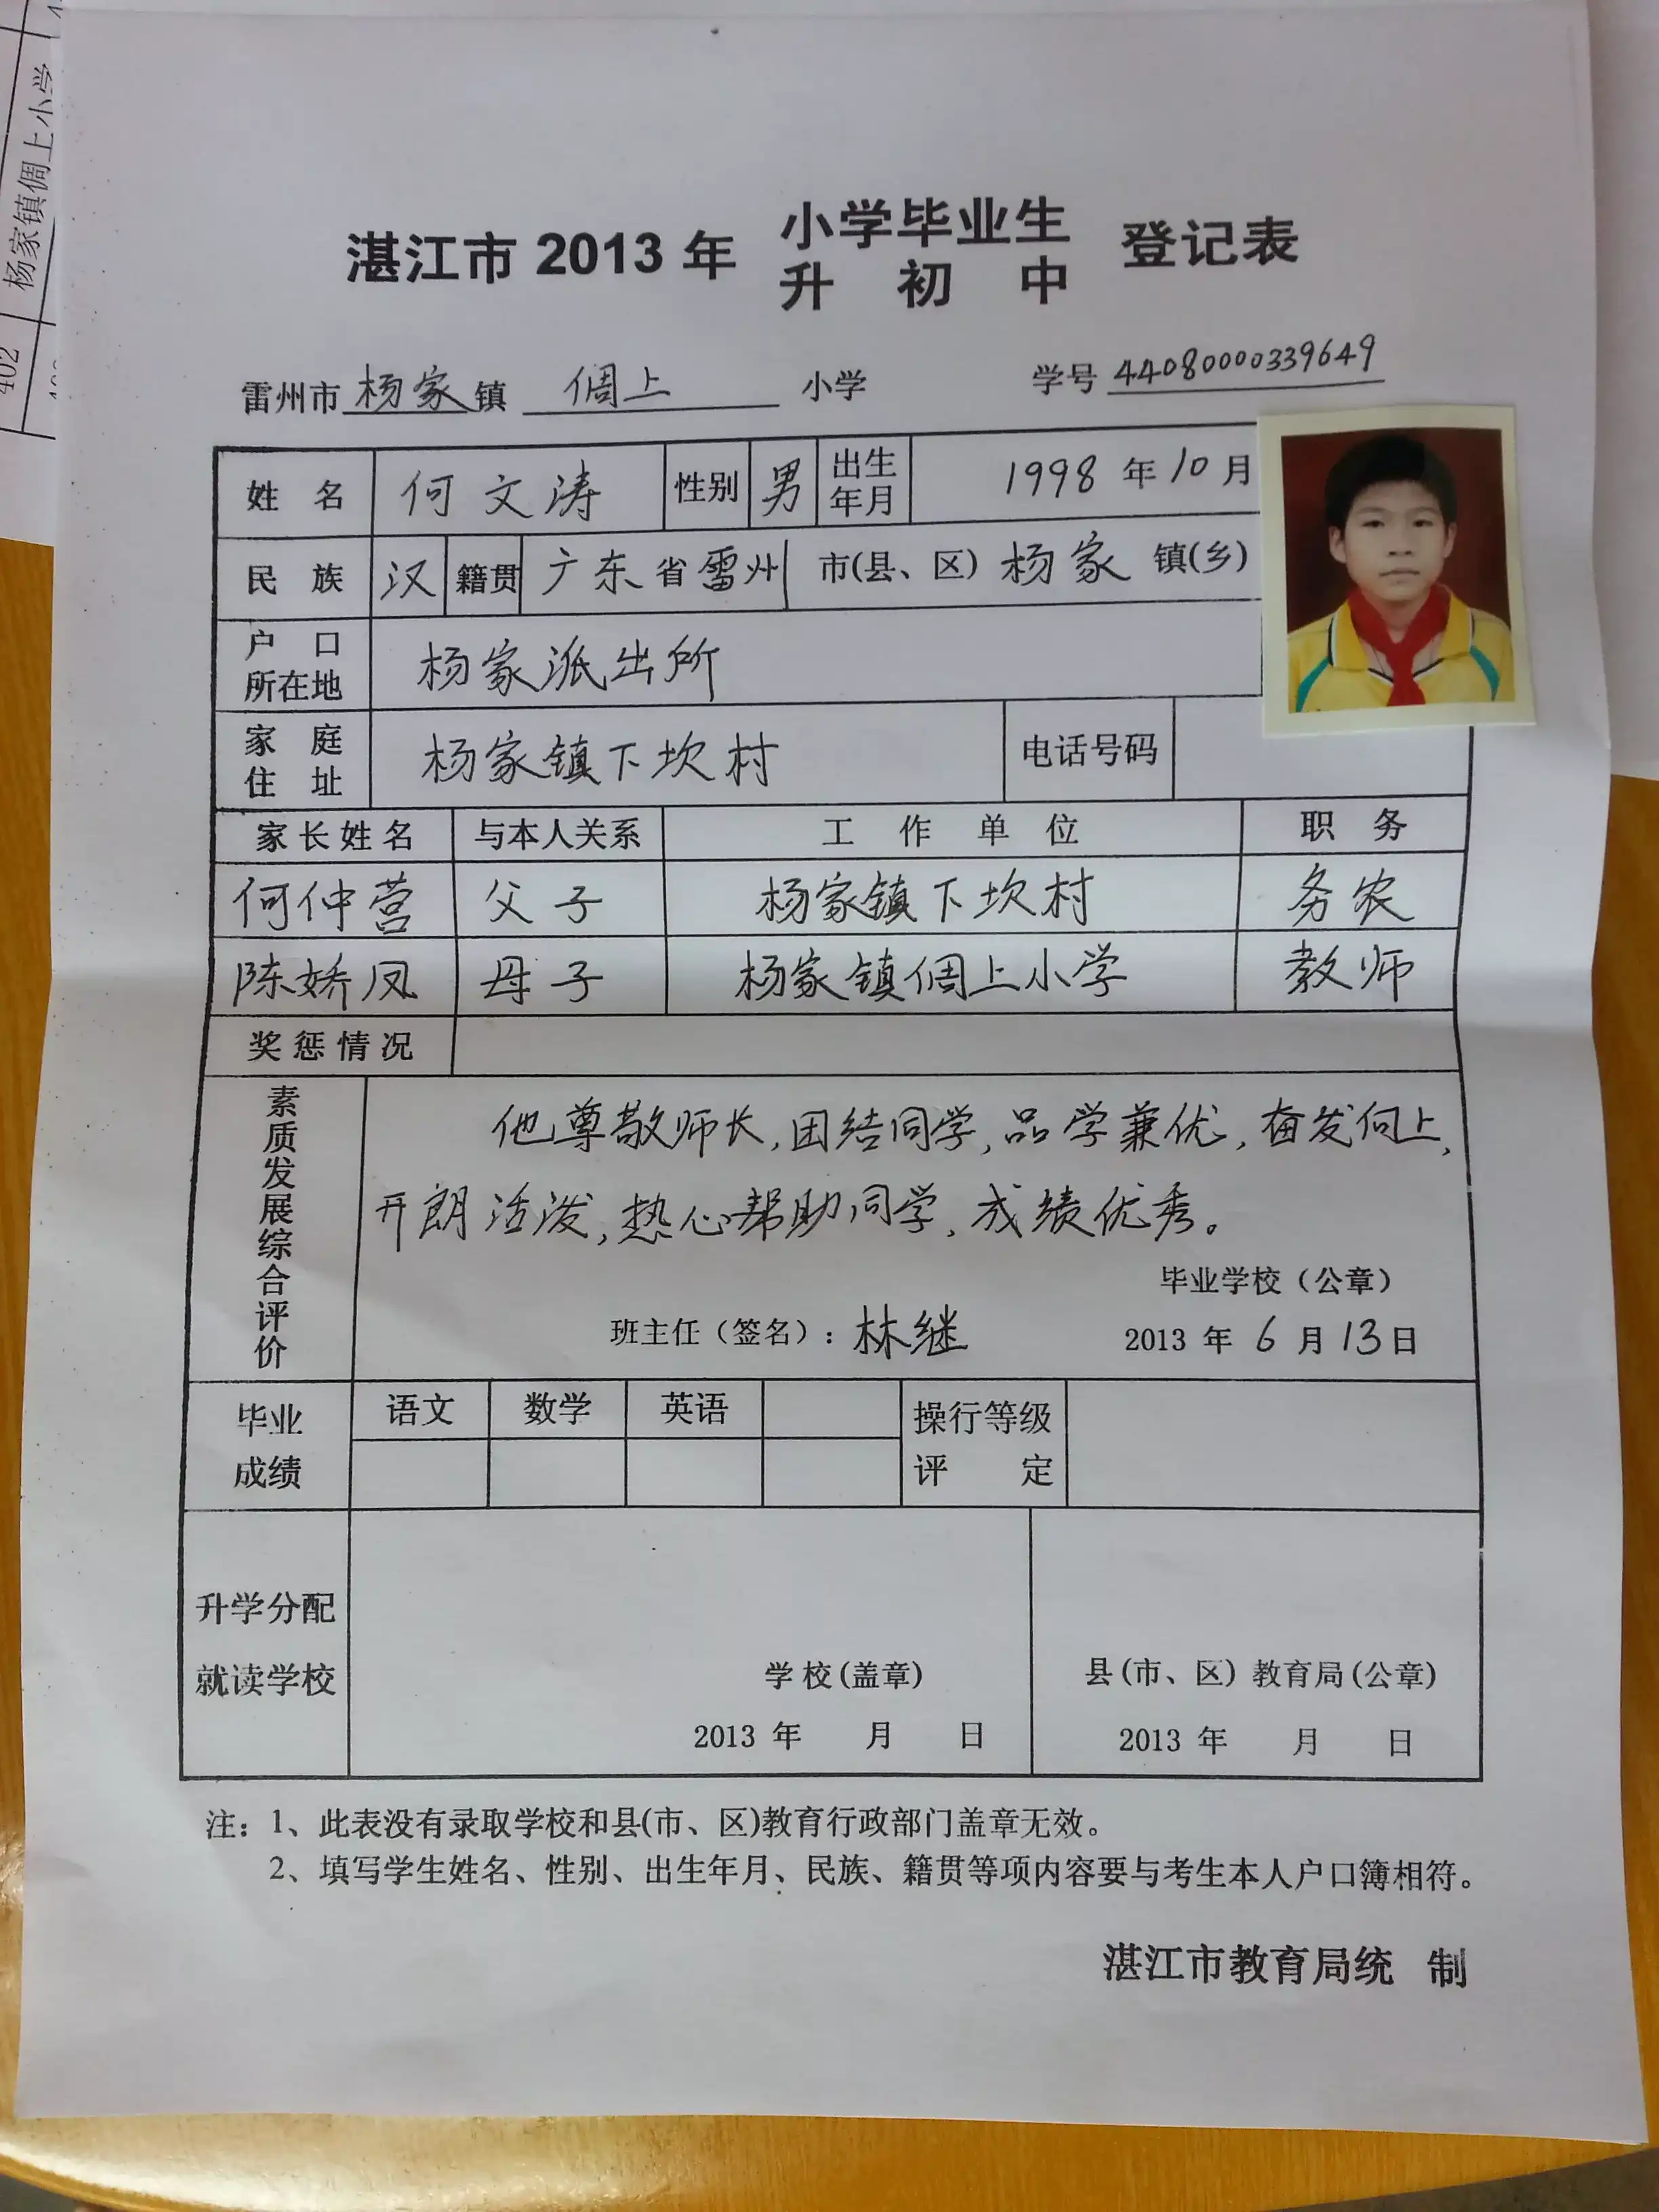 杨家镇倜上小学
402
湛江市 2013 年 小学毕业生 登记表
升初中
雷州市 杨家 镇 倜上 小学 学号 44080000339649
姓名 何文涛 性别 男 出生年月 1998 年 10 月
民族 汉 籍贯 广东 省 雷州 市(县、区) 杨家 镇(乡)
户口所在地 杨家派出所
家庭住址 杨家镇下坎村 电话号码
家长姓名 与本人关系 工作单位 职务
何仲营 父子 杨家镇下坎村 务农
陈娇凤 母子 杨家镇倜上小学 教师
奖惩情况
素质发展综合评价
他尊敬师长,团结同学,品学兼优,奋发向上,
开朗活泼,热心帮助同学,成绩优秀。
毕业学校（公章）
班主任（签名）：林继 2013 年 6 月 13 日
毕业成绩 语文 数学 英语 操行等级评定
升学分配
就读学校
学校(盖章) 县(市、区)教育局(公章)
2013 年 月 日 2013 年 月 日
注：1、此表没有录取学校和县(市、区)教育行政部门盖章无效。
2、填写学生姓名、性别、出生年月、民族、籍贯等项内容要与考生本人户口簿相符。
湛江市教育局统 制